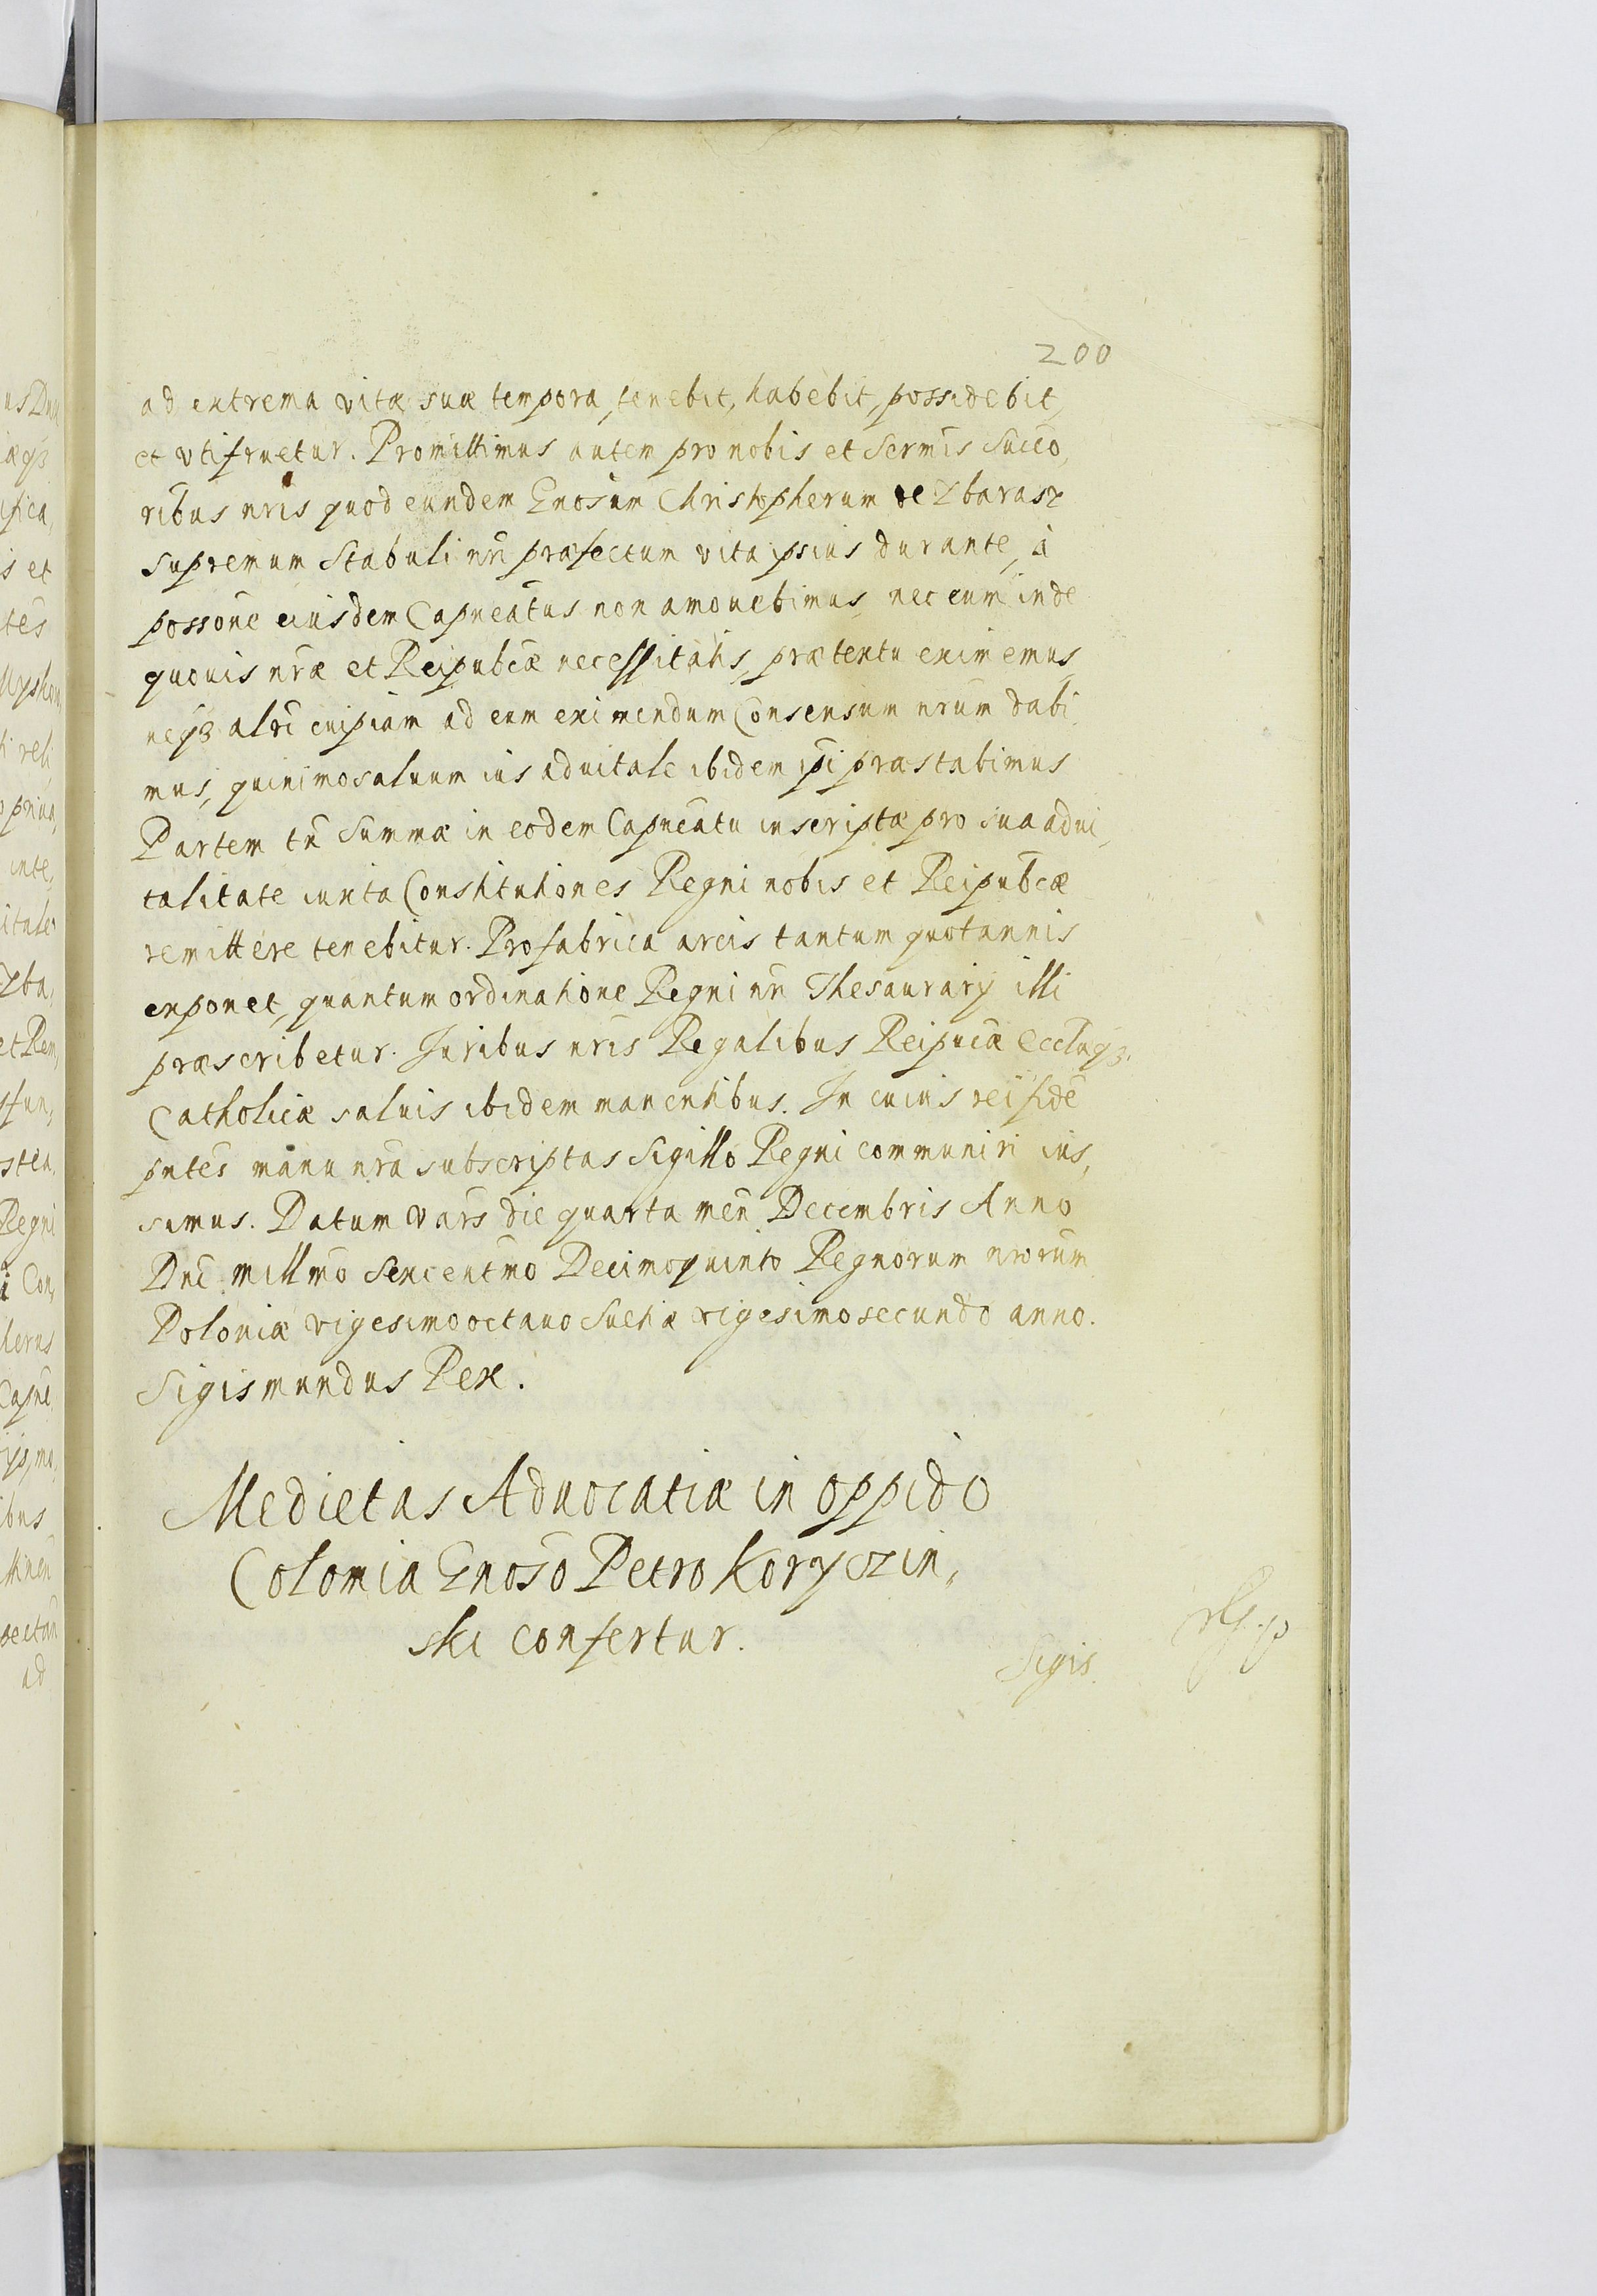 200
ad extrema vitæ suæ tempora, tenebit, habebit, possidebit,
et vtifruetur. Promittimus autem pro nobis et Sermis Succo,
ribus nris quod eundem Gnosum Christopherum de Zbarasz
supremum Stabuli nri præfectum vita ipsius durante, à
possone eiusdem Capneatus non amouebimus, nec eum inde
quouis nræ et Reipubcæ necessitatis, prætentu eximemus,
neqз alri cuipiam ad eum eximendum Consensum nrum dabi,
mus, quinimo saluum ius aduitale ibidem ipi præstabimus
Partem tn Summæ in eodem Capneatu inscriptæ pro sua adui,
talitate iuxta Constitutiones Regni nobis et Reipubcæ
remittere tenebitur. Pro fabrica arcis tantum quotannis
exponet, quantum ordinatione Regni nri Thesaurarij illi
præscribetur. Juribus nris Regalibus Reipucæ Ecclæqз.
Catholicæ saluis ibidem manentibus. In cuius rei fidē
pntes manu nra subscriptas Sigillo Regni communiri ius,
simus. Datum Vars die quarta men Decembris Anno
Dni millmo Sexcentmo Decimoquinto Regnorum nrorum
Poloniæ vigesimooctauo Sueciæ vigesimosecundo anno.
Sigismundus Rex.
Medietas Aduocatiæ in oppido
Colomia Gnoso Petro Koryczin,
ski confertur.
Sigis.